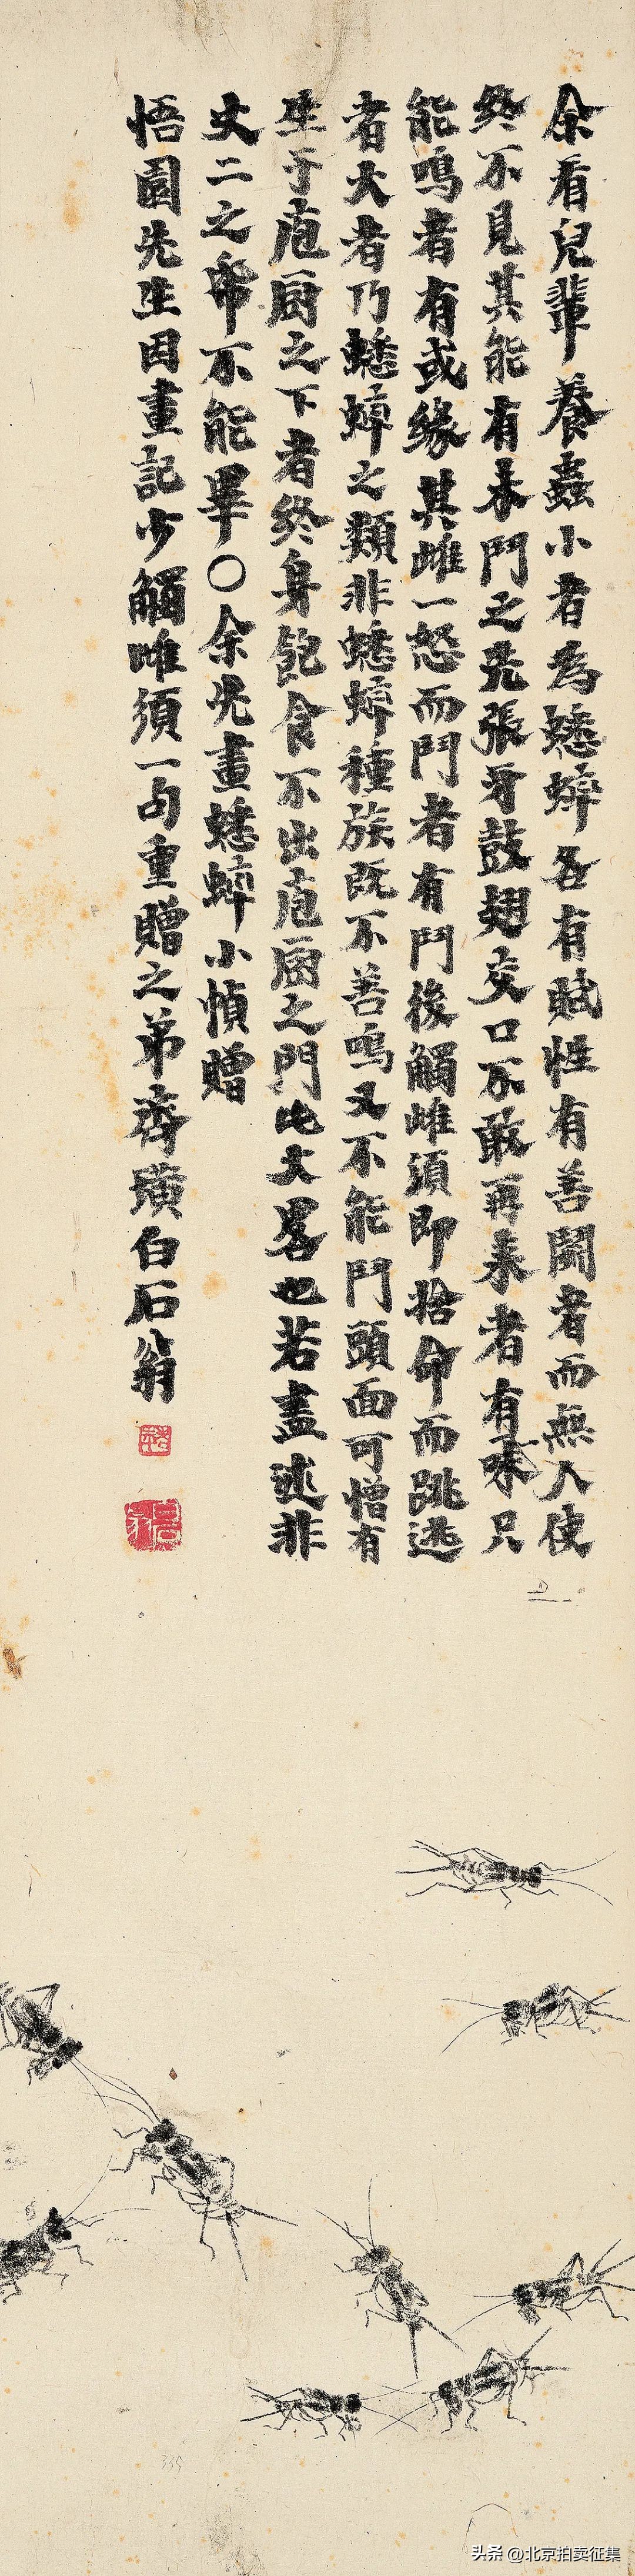 余看兒輩養蟲小者為蟋蟀各有賦性有善鬭者而無人使
終不見其能有未鬥之先張牙鼓翅交口不敢再來者有味只
能鳴者有或緣其雌一怒而鬥者有鬥後觸雌須即捨命而跳逃
者大者乃蟋蟀之類非蟋蟀種族既不善鳴又不能鬥頭面可憎有
生于庖厨之下者終身飽食不出庖厨之門此大畧也若盡述非
丈二之帋不能畢〇余先畫蟋蟀小幀贈
悟園先生因畫記少觸雌須一句重贈之弟齊璜白石翁
335
头条 @北京拍卖征集